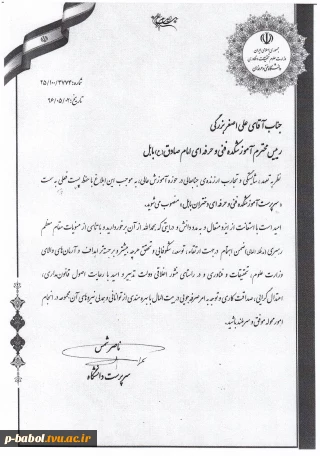 جمهوری اسلامی ایران
وزارت علوم، تحقیقات و فناوری
دانشگاه فنی و حرفه‌ای
شماره: ۲۵/۱۰۰/۳۷۷۴
تاریخ: ۹۶/۰۵/۰۲
جناب آقای علی اصغر بزرگی
رییس محترم آموزشکده فنی و حرفه ای امام صادق (ع) بابل
نظر به تعهد، شایستگی و تجارب ارزنده‌ی جنابعالی در حوزه آموزش عالی، به موجب این ابلاغ با حفظ پست فعلی به سمت
«سرپرست آموزشکده فنی و حرفه ای دختران بابل» منصوب می شوید.
امید است با استعانت از ایزد متعال و به مدد دانش و درایتی که بحمدالله از آن برخوردارید و با تاسی از منویات مقام معظم
رهبری (مدظله العالی) اهتمام در جهت ارتقاء، توسعه، شکوفایی و تحقق هرچه بیشتر و برتر اهداف و آرمان‌های والای
وزارت علوم، تحقیقات و فناوری و در راستای مشور اخلاقی دولت تدبیر و امید با رعایت اصول قانون‌مداری،
اعتدال گرایی، صداقت کاری و توجه به امر صرفه جویی در بیت المال با بهره مندی از توانایی و همدلی نیروهای آن مجموعه در انجام
امور محوله موفق و سربلند باشید.
ناصر شمس
سرپرست دانشگاه
p-babol.tvu.ac.ir